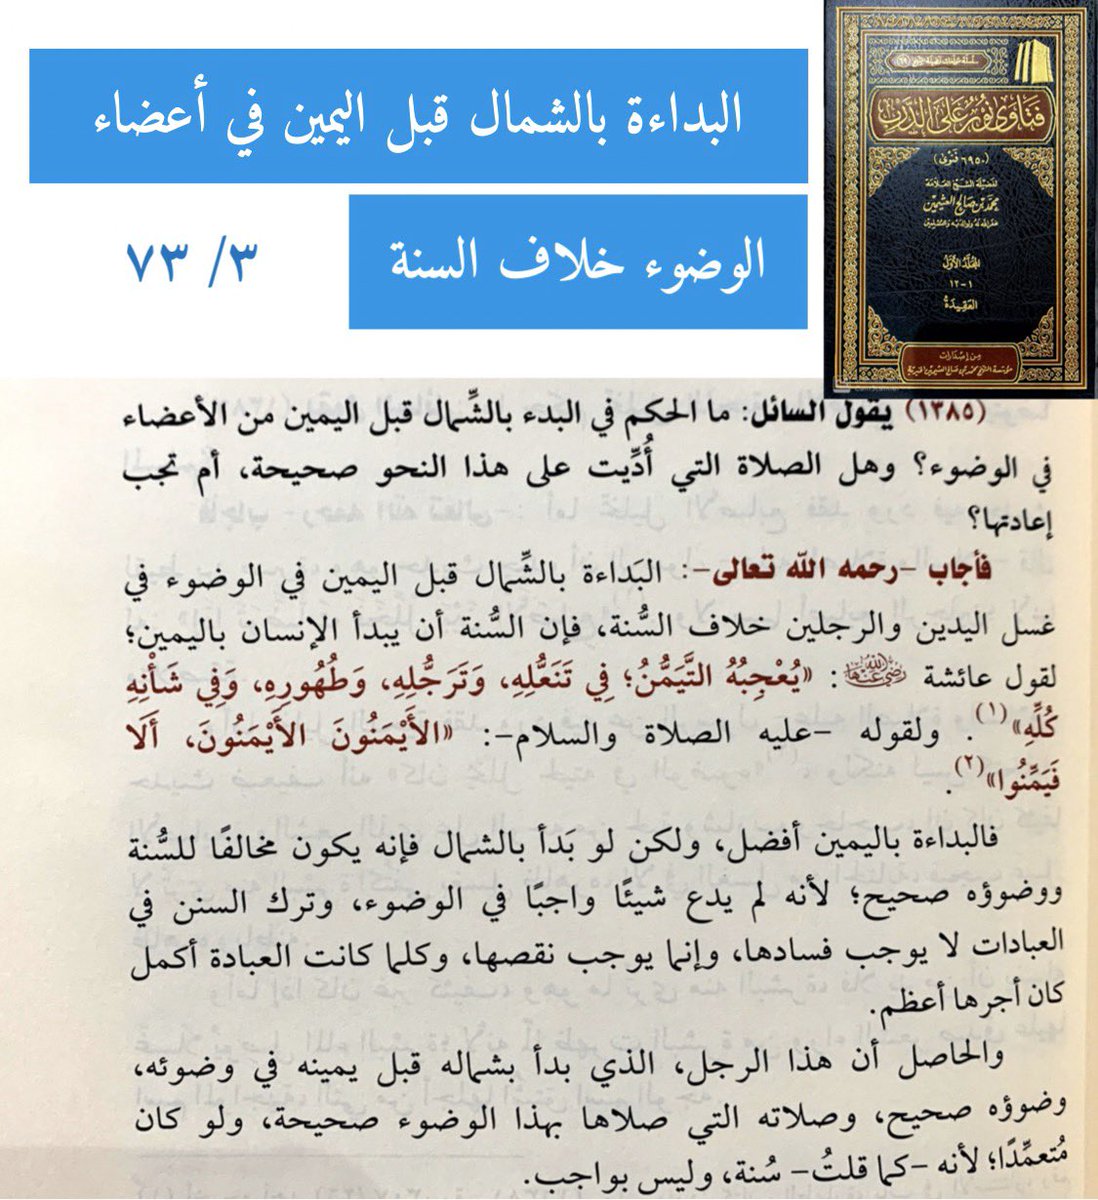 البداءة بالشمال قبل اليمين في أعضاء
الوضوء خلاف السنة
٣/ ٧٣
فتاوى نور على الدرب
(٦٩٥٠ فتوى)
لفضيلة الشيخ العلامة
محمد بن صالح العثيمين
غفر الله له ولوالديه وللمسلمين
المجلد الأول
١-١٢
العقيدة
من إصدارات
مؤسسة الشيخ محمد بن صالح العثيمين الخيرية
(١٣٨٥) يقول السائل: ما الحكم في البدء بالشِّمال قبل اليمين من الأعضاء
في الوضوء؟ وهل الصلاة التي أُدِّيت على هذا النحو صحيحة، أم تجب
إعادتها؟
فأجاب -رحمه الله تعالى-: البَداءة بالشِّمال قبل اليمين في الوضوء في
غسل اليدين والرجلين خلاف السُّنة، فإن السُّنة أن يبدأ الإنسان باليمين؛
لقول عائشة رضي الله عنها: «يُعْجِبُهُ التَّيَمُّنُ؛ فِي تَنَعُّلِهِ، وَتَرَجُّلِهِ، وَطُهُورِهِ، وَفِي شَأْنِهِ
كُلِّهِ»(١). ولقوله -عليه الصلاة والسلام-: «الأَيْمَنُونَ الأَيْمَنُونَ، أَلَا
فَيَمِّنُوا»(٢).
فالبداءة باليمين أفضل، ولكن لو بَدأ بالشمال فإنه يكون مخالفًا للسُّنة
ووضوؤه صحيح؛ لأنه لم يدع شيئًا واجبًا في الوضوء، وترك السنن في
العبادات لا يوجب فسادها، وإنما يوجب نقصها، وكلما كانت العبادة أكمل
كان أجرها أعظم.
والحاصل أن هذا الرجل، الذي بدأ بشماله قبل يمينه في وضوئه،
وضوؤه صحيح، وصلاته التي صلاها بهذا الوضوء صحيحة، ولو كان
مُتعمِّدًا؛ لأنه -كما قلتُ- سُنة، وليس بواجب.